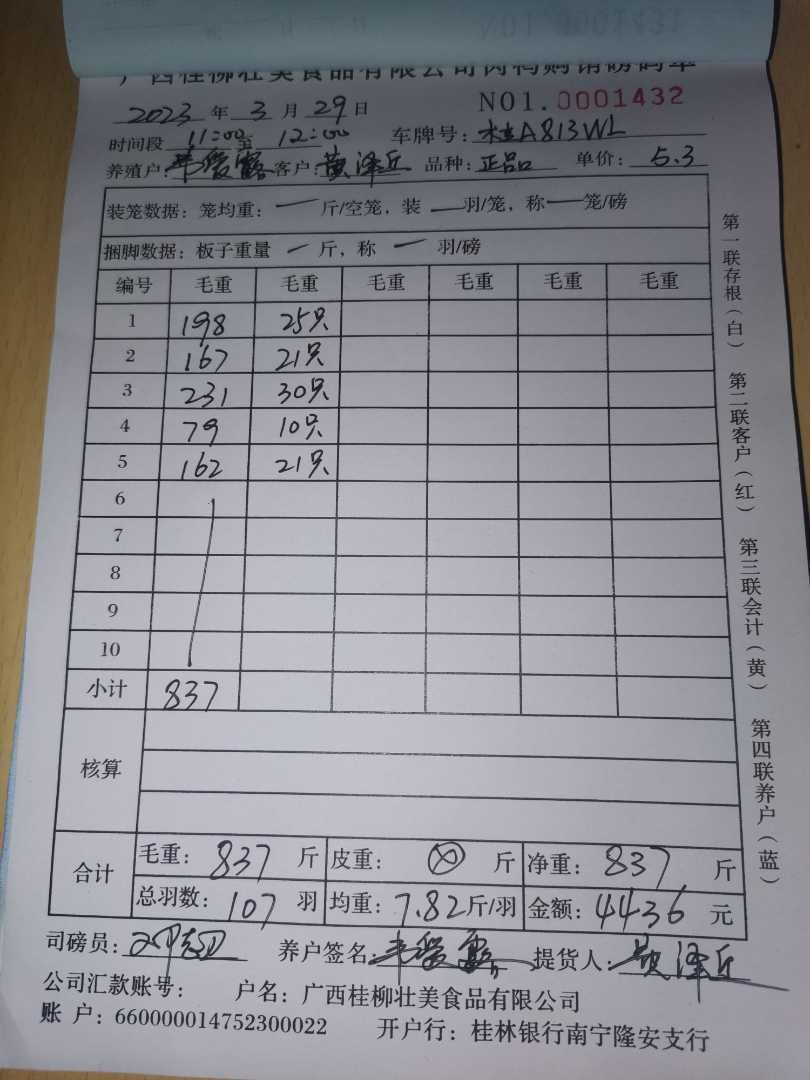 广西桂柳壮美食品有限公司肉鸭购销磅码单
2023年3月29日 NO1.0001432
时间段 11:00至12:00 车牌号:桂A813WL
养殖户: 客户:黄泽丘 品种:正品 单价:5.3
装笼数据:笼均重:一斤/空笼,装一羽/笼,称一笼/磅
捆脚数据:板子重量一斤,称一羽/磅
编号 毛重 毛重 毛重 毛重 毛重 毛重
1 198 25只
2 167 21只
3 231 30只
4 79 10只
5 162 21只
6
7
8
9
10
小计 837
核算
合计 毛重:837斤 皮重:斤 净重:837斤
总羽数:107羽 均重:7.82斤/羽 金额:4436元
司磅员: 养户签名: 提货人:黄泽丘
公司汇款账号: 户名:广西桂柳壮美食品有限公司
账户:660000014752300022 开户行:桂林银行南宁隆安支行
第一联存根(白) 第二联客户(红) 第三联会计(黄) 第四联养户(蓝)